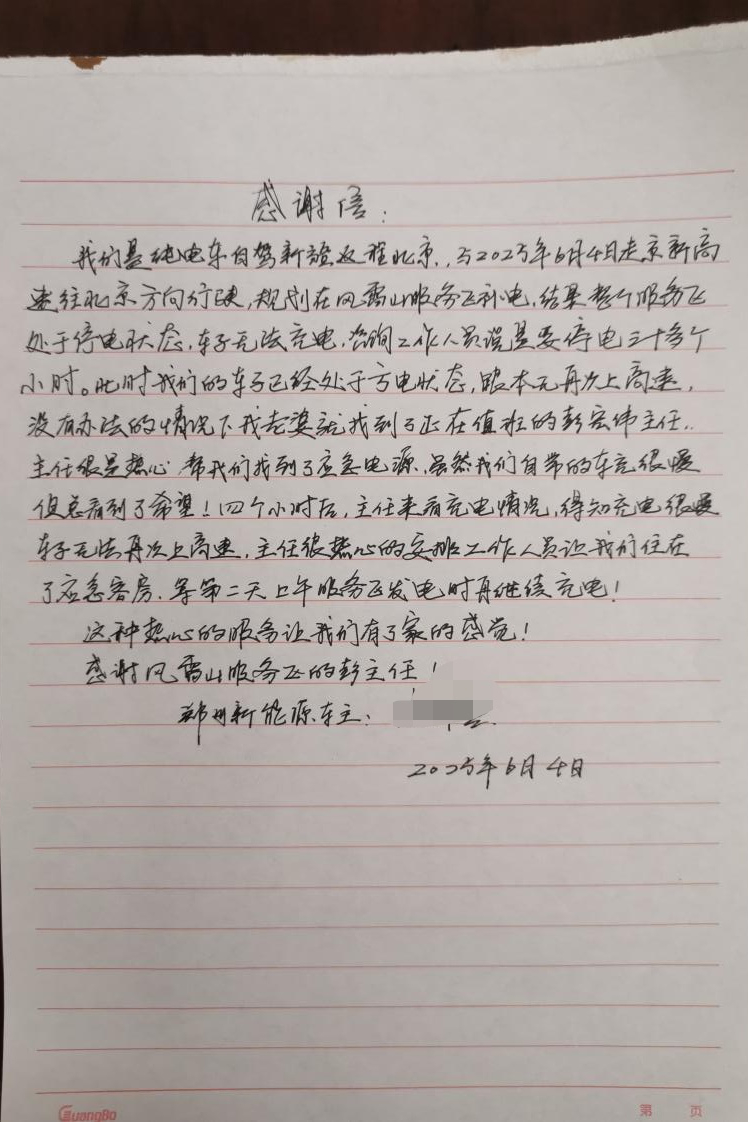 感谢信：
我们是纯电车自驾新疆返程北京，与2025年6月4日走京新高
速往北京方向行驶，规划在风雷山服务区补电，结果整个服务区
处于停电状态，车子无法充电，咨询工作人员说是要停电三十多个
小时。此时我们的车子已经处于亏电状态，跟本无再次上高速，
没有办法的情况下我老婆就找到了正在值班的彭宏伟主任，
主任很是热心 帮我们找到了应急电源，虽然我们自带的车充很慢
但总看到了希望！四个小时后，主任来看充电情况，得知充电很慢
车子无法再次上高速，主任很热心的安排工作人员让我们住在
了应急客房，等第二天上午服务区发电时再继续充电！
这种热心的服务让我们有了家的感觉！
感谢风雷山服务区的彭主任！
郑州新能源车主：
2025年6月4日
GuangBo 第 页